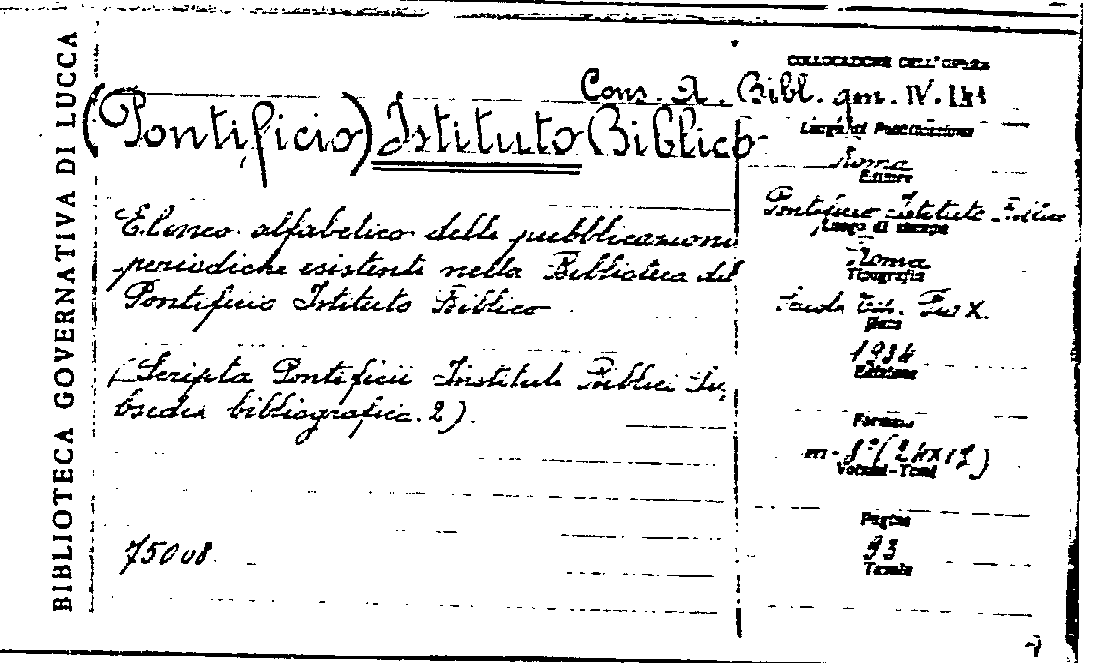 BIBLIOTECA GOVERNATIVA DI LUCCA
COLLOCAZIONE DELL'OPERA
Cons. A. Bibl. gen. IV. 141
(Pontificio) Istituto Biblico
Luogo di Pubblicazione
Roma
Editore
Pontificio Istituto Biblico
Luogo di stampa
Roma
Tipografia
Scuola Tip. Pio X.
Data
1934
Edizione
Formato
m-8°(24x17)
Volumi-Tomi
Pagine
93
Tavole
Elenco alfabetico delle pubblicazioni
periodiche esistenti nella Biblioteca del
Pontificio Istituto Biblico
(Scripta Pontificii Instituti Biblici Su,
bsedia bibliografica. 2)
75008